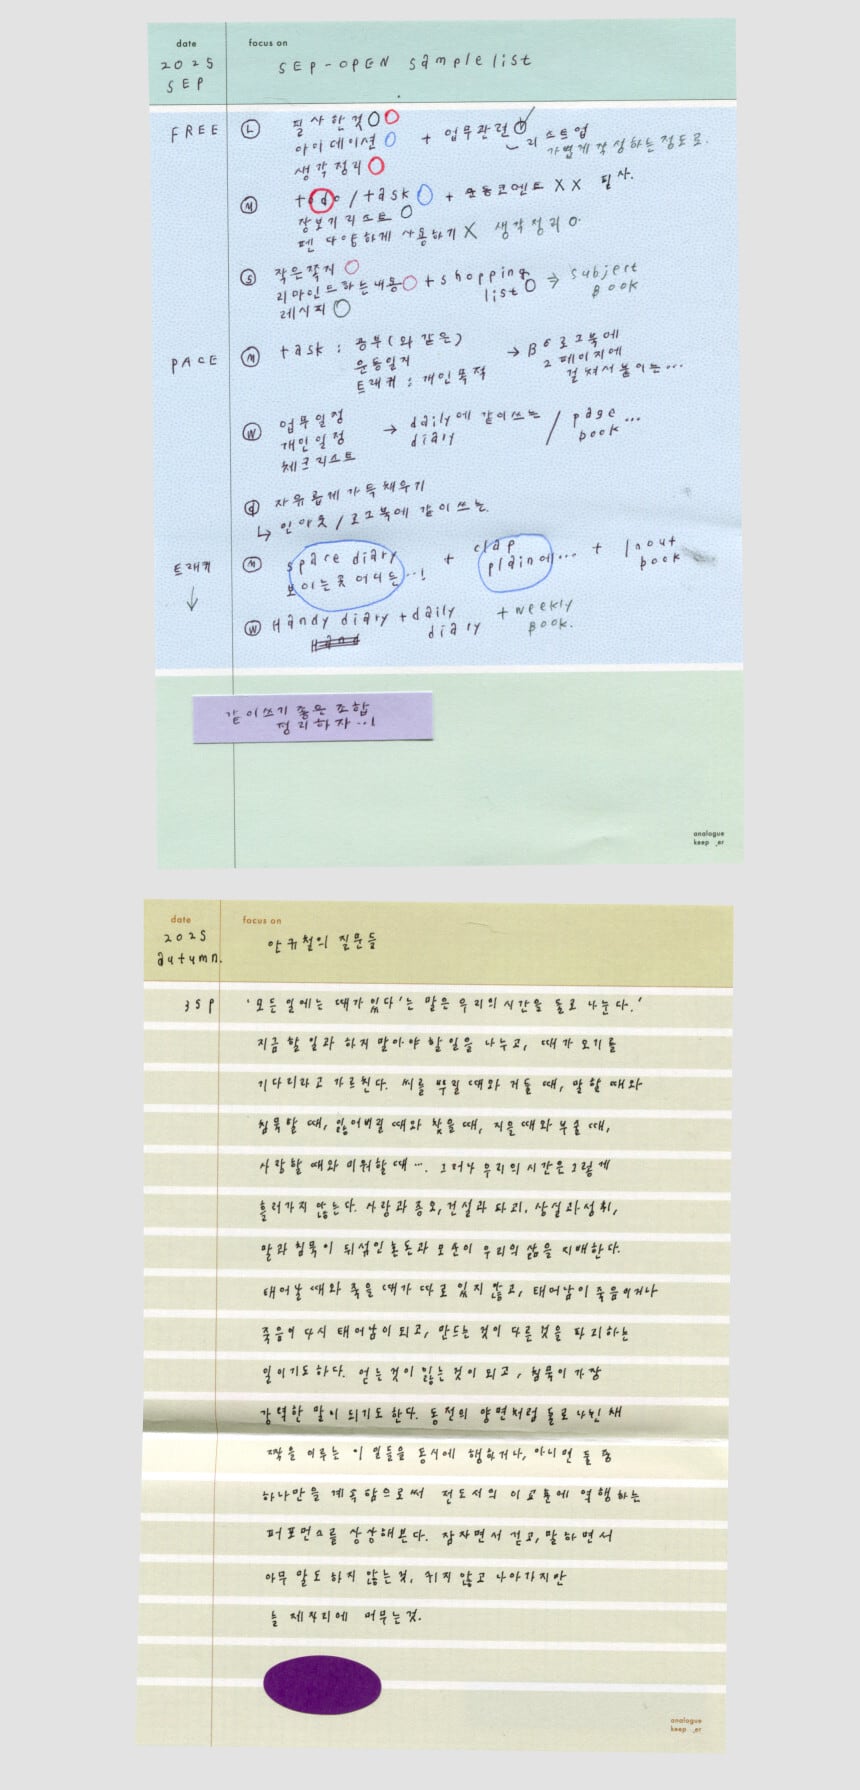 date
focus on
2025
SEP
SEP-OPEN sample list
FREE
L
필사한것
아이데이션
생각정리
+ 업무관련
리스트업
가볍게 작성하는 정도로.
M
todo / task
+ 운동코멘트 X X 필사.
장보기리스트
펜 다양하게 사용하기 X 생각정리
S
작은쪽지
리마인드하는내용
레시피
+ shopping
list
→ subject
book
PACE
M
task : 공부(와 같은)
운동일지
트래커 : 개인목적
→ B6 로그북에
2 페이지에
걸쳐서 붙이는...
W
업무일정
개인일정
체크리스트
→ daily에 같이쓰는
diary
/ page
book...
d
자유롭게 가득채우기
↳ 인아웃 / 로그북에 같이 쓰는.
트래커
↓
M
space diary
보이는 곳 어디든...!
+ clap
plain에...
+ Inout
book
W
Handy diary + daily
diary
+ weekly
book.
같이쓰기 좋은 조합
정리하자...!
analogue
keep_er
date
focus on
2025
autumn.
안규철의 질문들
35p
'모든 일에는 때가 있다'는 말은 우리의 시간을 둘로 나눈다.'
지금 할 일과 하지 말아야 할 일을 나누고, 때가 오기를
기다리라고 가르친다. 씨를 뿌릴 때와 거둘 때, 말할 때와
침묵할 때, 잃어버릴 때와 찾을 때, 지을 때와 부술 때,
사랑할 때와 미워할 때.... 그러나 우리의 시간은 그렇게
흘러가지 않는다. 사랑과 증오, 건설과 파괴. 상실과 성취,
말과 침묵이 뒤섞인 혼돈과 모순이 우리의 삶을 지배한다.
태어날 때와 죽을 때가 따로 있지 않고, 태어남이 죽음이거나
죽음이 다시 태어남이 되고, 만드는 것이 다른 것을 파괴하는
일이기도 하다. 얻는 것이 잃는 것이 되고, 침묵이 가장
강력한 말이 되기도 한다. 동전의 양면처럼 둘로 나뉜 채
짝을 이루는 이 일들을 동시에 행하거나, 아니면 둘 중
하나만을 계속함으로써 전도서의 이 교훈에 역행하는
퍼포먼스를 상상해본다. 잠자면서 걷고, 말하면서
아무 말도 하지 않는 것, 쉬지 않고 나아가지만
늘 제자리에 머무는 것.
analogue
keep_er